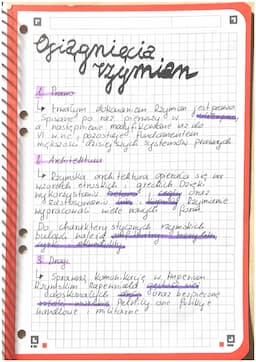 Osiągnięcia
rzymian
1. Prawo
↳ trwałym dokonaniem Rzymian jest prawo.
Spisane po raz pierwszy w
a następnie modyfikowane aż do
VI w. n.e. pozostaje fundamentem
większości dzisiejszych systemów prawnych
2. Architektura
↳ Rzymska architektura opierała się na
wzorcach etruskich i greckich Dzięki
wykorzystaniu betonu i cegły oraz
zastosowaniu łuku i kopuły Rzymianie
wypracowali wiele nowych form.
Do charakterystycznych rzymskich
budowli należą amfiteatry
cyrki, akwedukty
3. Drogi
↳ Sprawną komunikację w Imperium
Rzymskim zapewniała gęsta sieć
doskonałych dróg oraz bezpieczne
szlaki morskie Pełniły one funkcje
handlowe i militarne